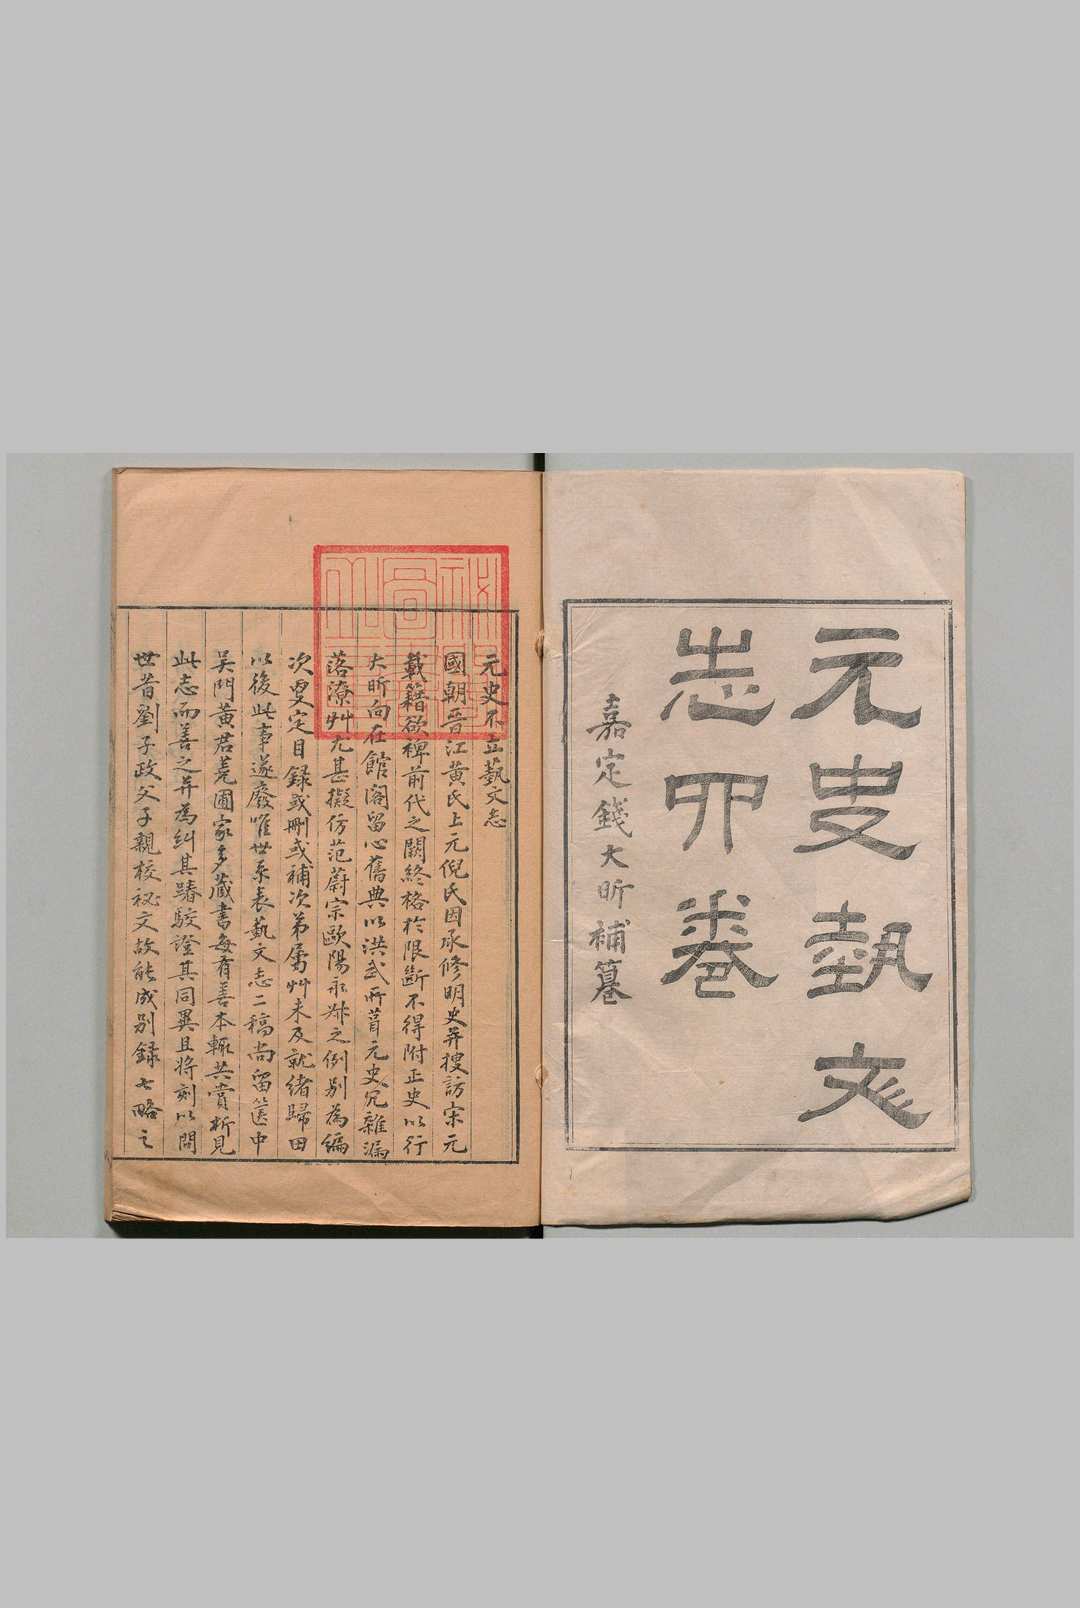 元史藝文
志四卷
嘉定錢大昕補纂
元史不立藝文志
國朝晉江黃氏上元倪氏因承修明史并搜訪宋元
載籍欲裨前代之闕終格於限斷不得附正史以行
大昕向在館閣留心舊典以洪武所葺元史冗雜漏
落潦艸尤甚擬仿范蔚宗歐陽永叔之例別為編
次更定目錄或刪或補次第屬艸未及就緒歸田
以後此事遂廢唯世系表藝文志二稿尚留篋中
吳門黃君蕘圃家多藏書每有善本輒共賞析見
此志而善之并為糾其踳駮證其同異且將刻以問
世昔劉子政父子親校祕文故能成別錄七略之